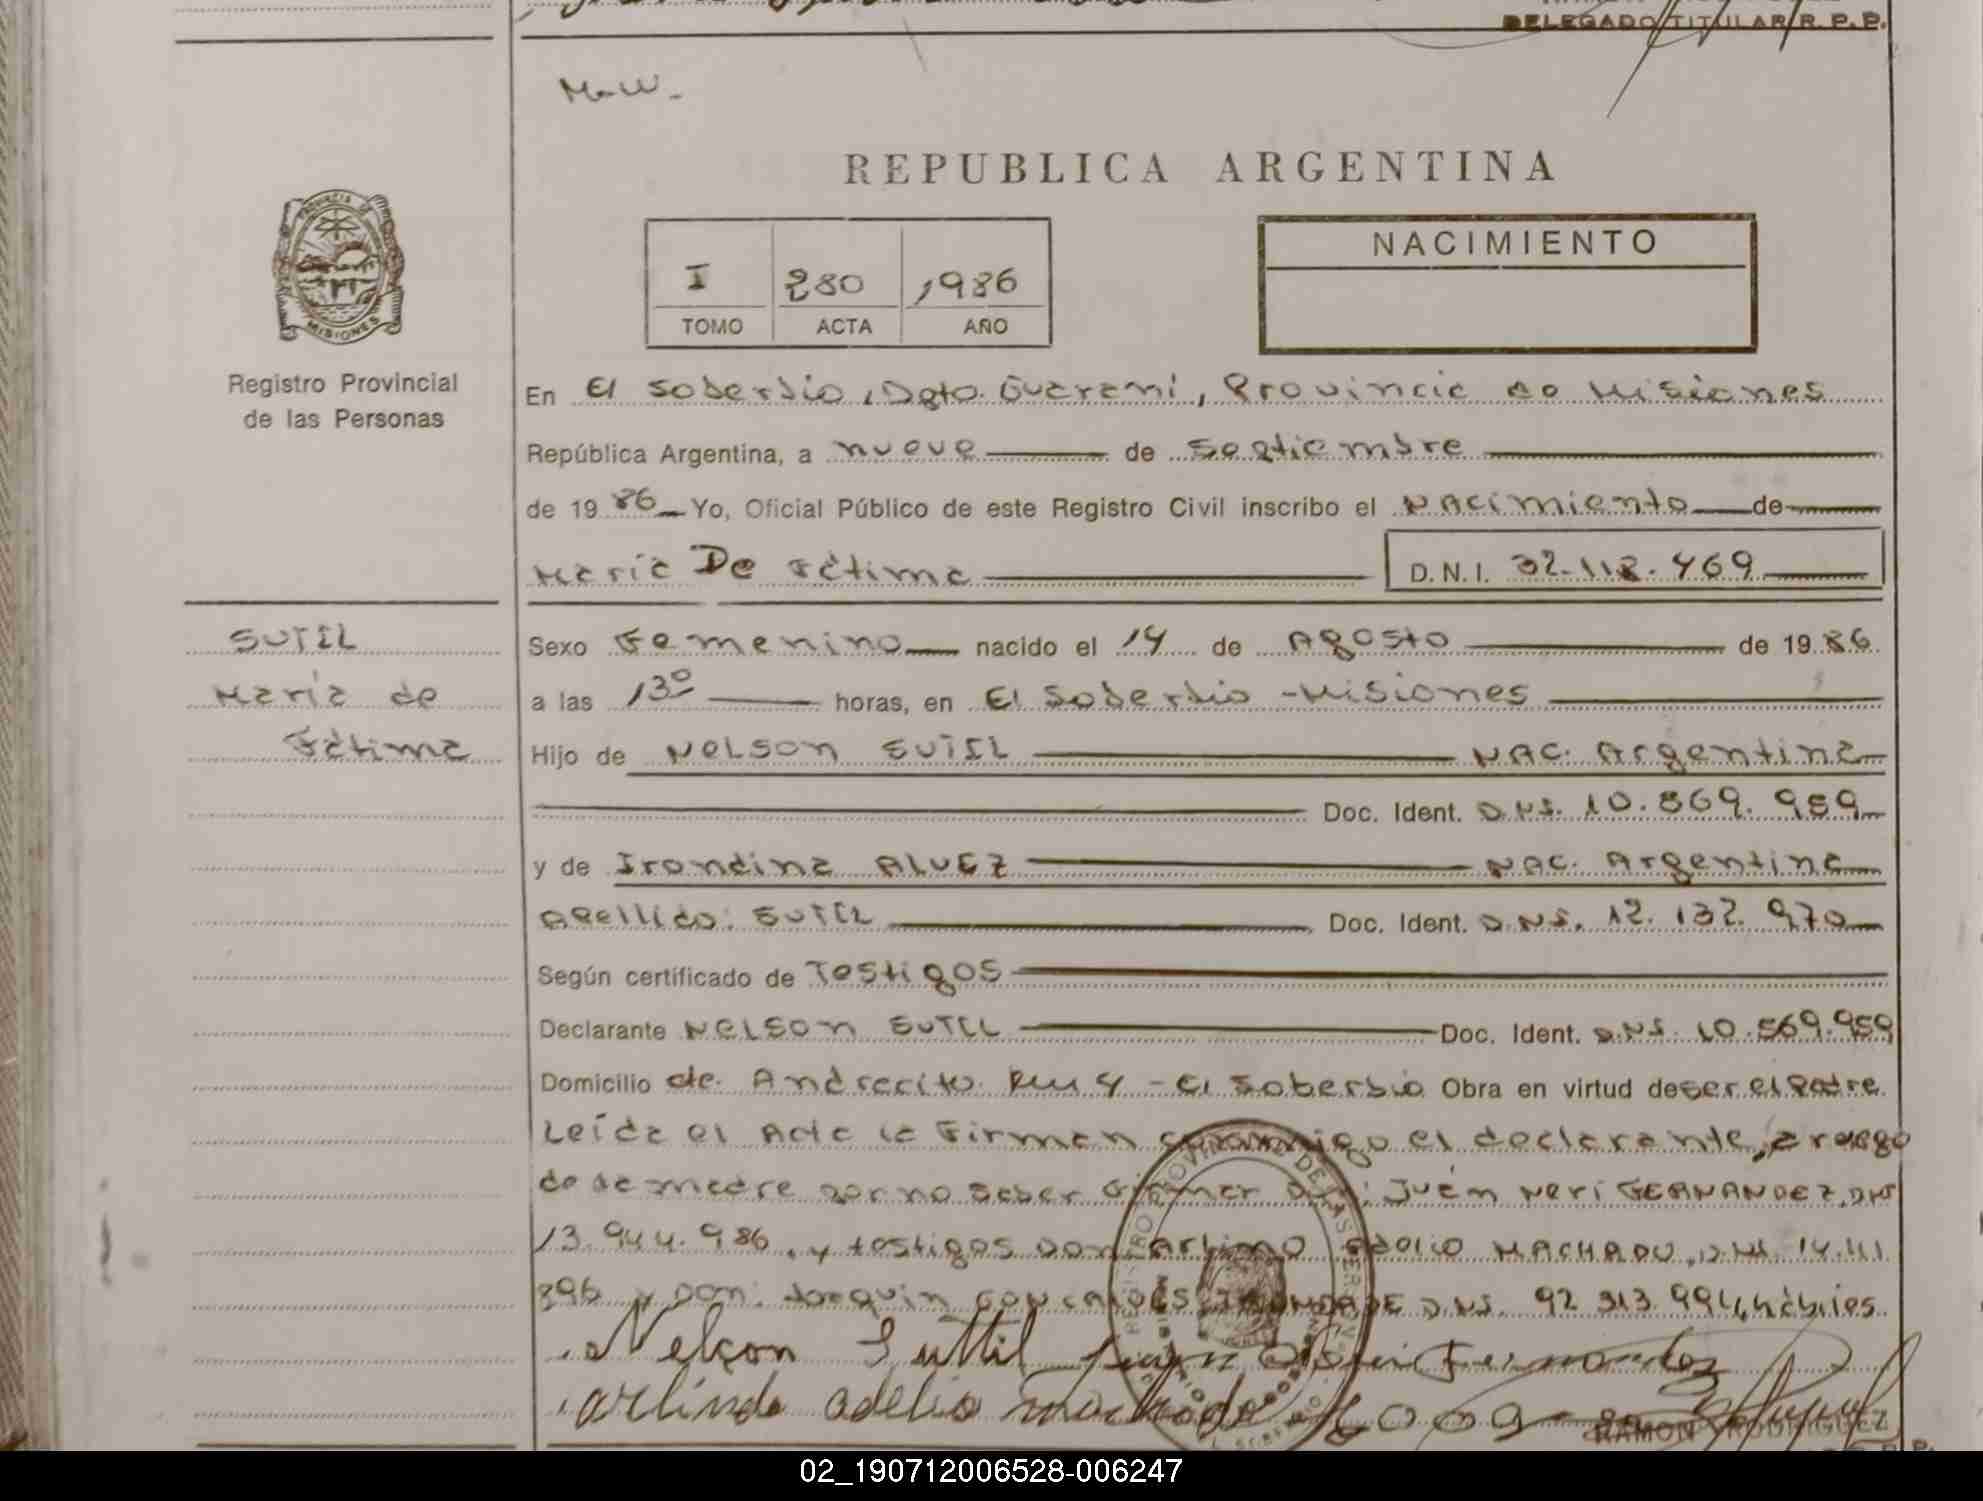 DELEGADO TITULAR R. P. P.
REPUBLICA ARGENTINA
PROVINCIA DE
MISIONES
Registro Provincial
de las Personas
I 280 1986
TOMO ACTA AÑO
NACIMIENTO
En El Soberbio, Dpto. Guaraní, Provincia de Misiones
República Argentina, a nueve de Septiembre
de 1986 Yo, Oficial Público de este Registro Civil inscribo el NACimiento de
María De Fátima
D.N.I. 32.112.469
SUTIL
María de
Fátima
Sexo Femenino nacido el 14 de Agosto de 1986.
a las 13º horas, en El Soberbio - Misiones
Hijo de NELSON SUTIL NAC. Argentina
Doc. Ident. D.N.I. 10.869.959
y de Irondina ALVEZ NAC. Argentina
Apellido: SUTIL Doc. Ident. D.N.I. 12.132.970
Según certificado de Testigos
Declarante NELSON SUTIL Doc. Ident. D.N.I. 10.569.959
Domicilio de Andrecito Km 4 - El Soberbio Obra en virtud de ser el Padre
Leída el Acta la Firman conmigo el declarante, a ruego
de la madre por no saber Firmar Don: Juan Neri FERNANDEZ, DNI
13.944.986, y testigos Don Arlindo Adelio MACHADO, D.N.I. 14.111
896 y Don: Joaquin D.N.I. 92 313 994, hábiles.
Nelson Suttil Juan Neri Fernandez
arlindo adelio machado
RAMON RODRIGUEZ
02_190712006528-006247